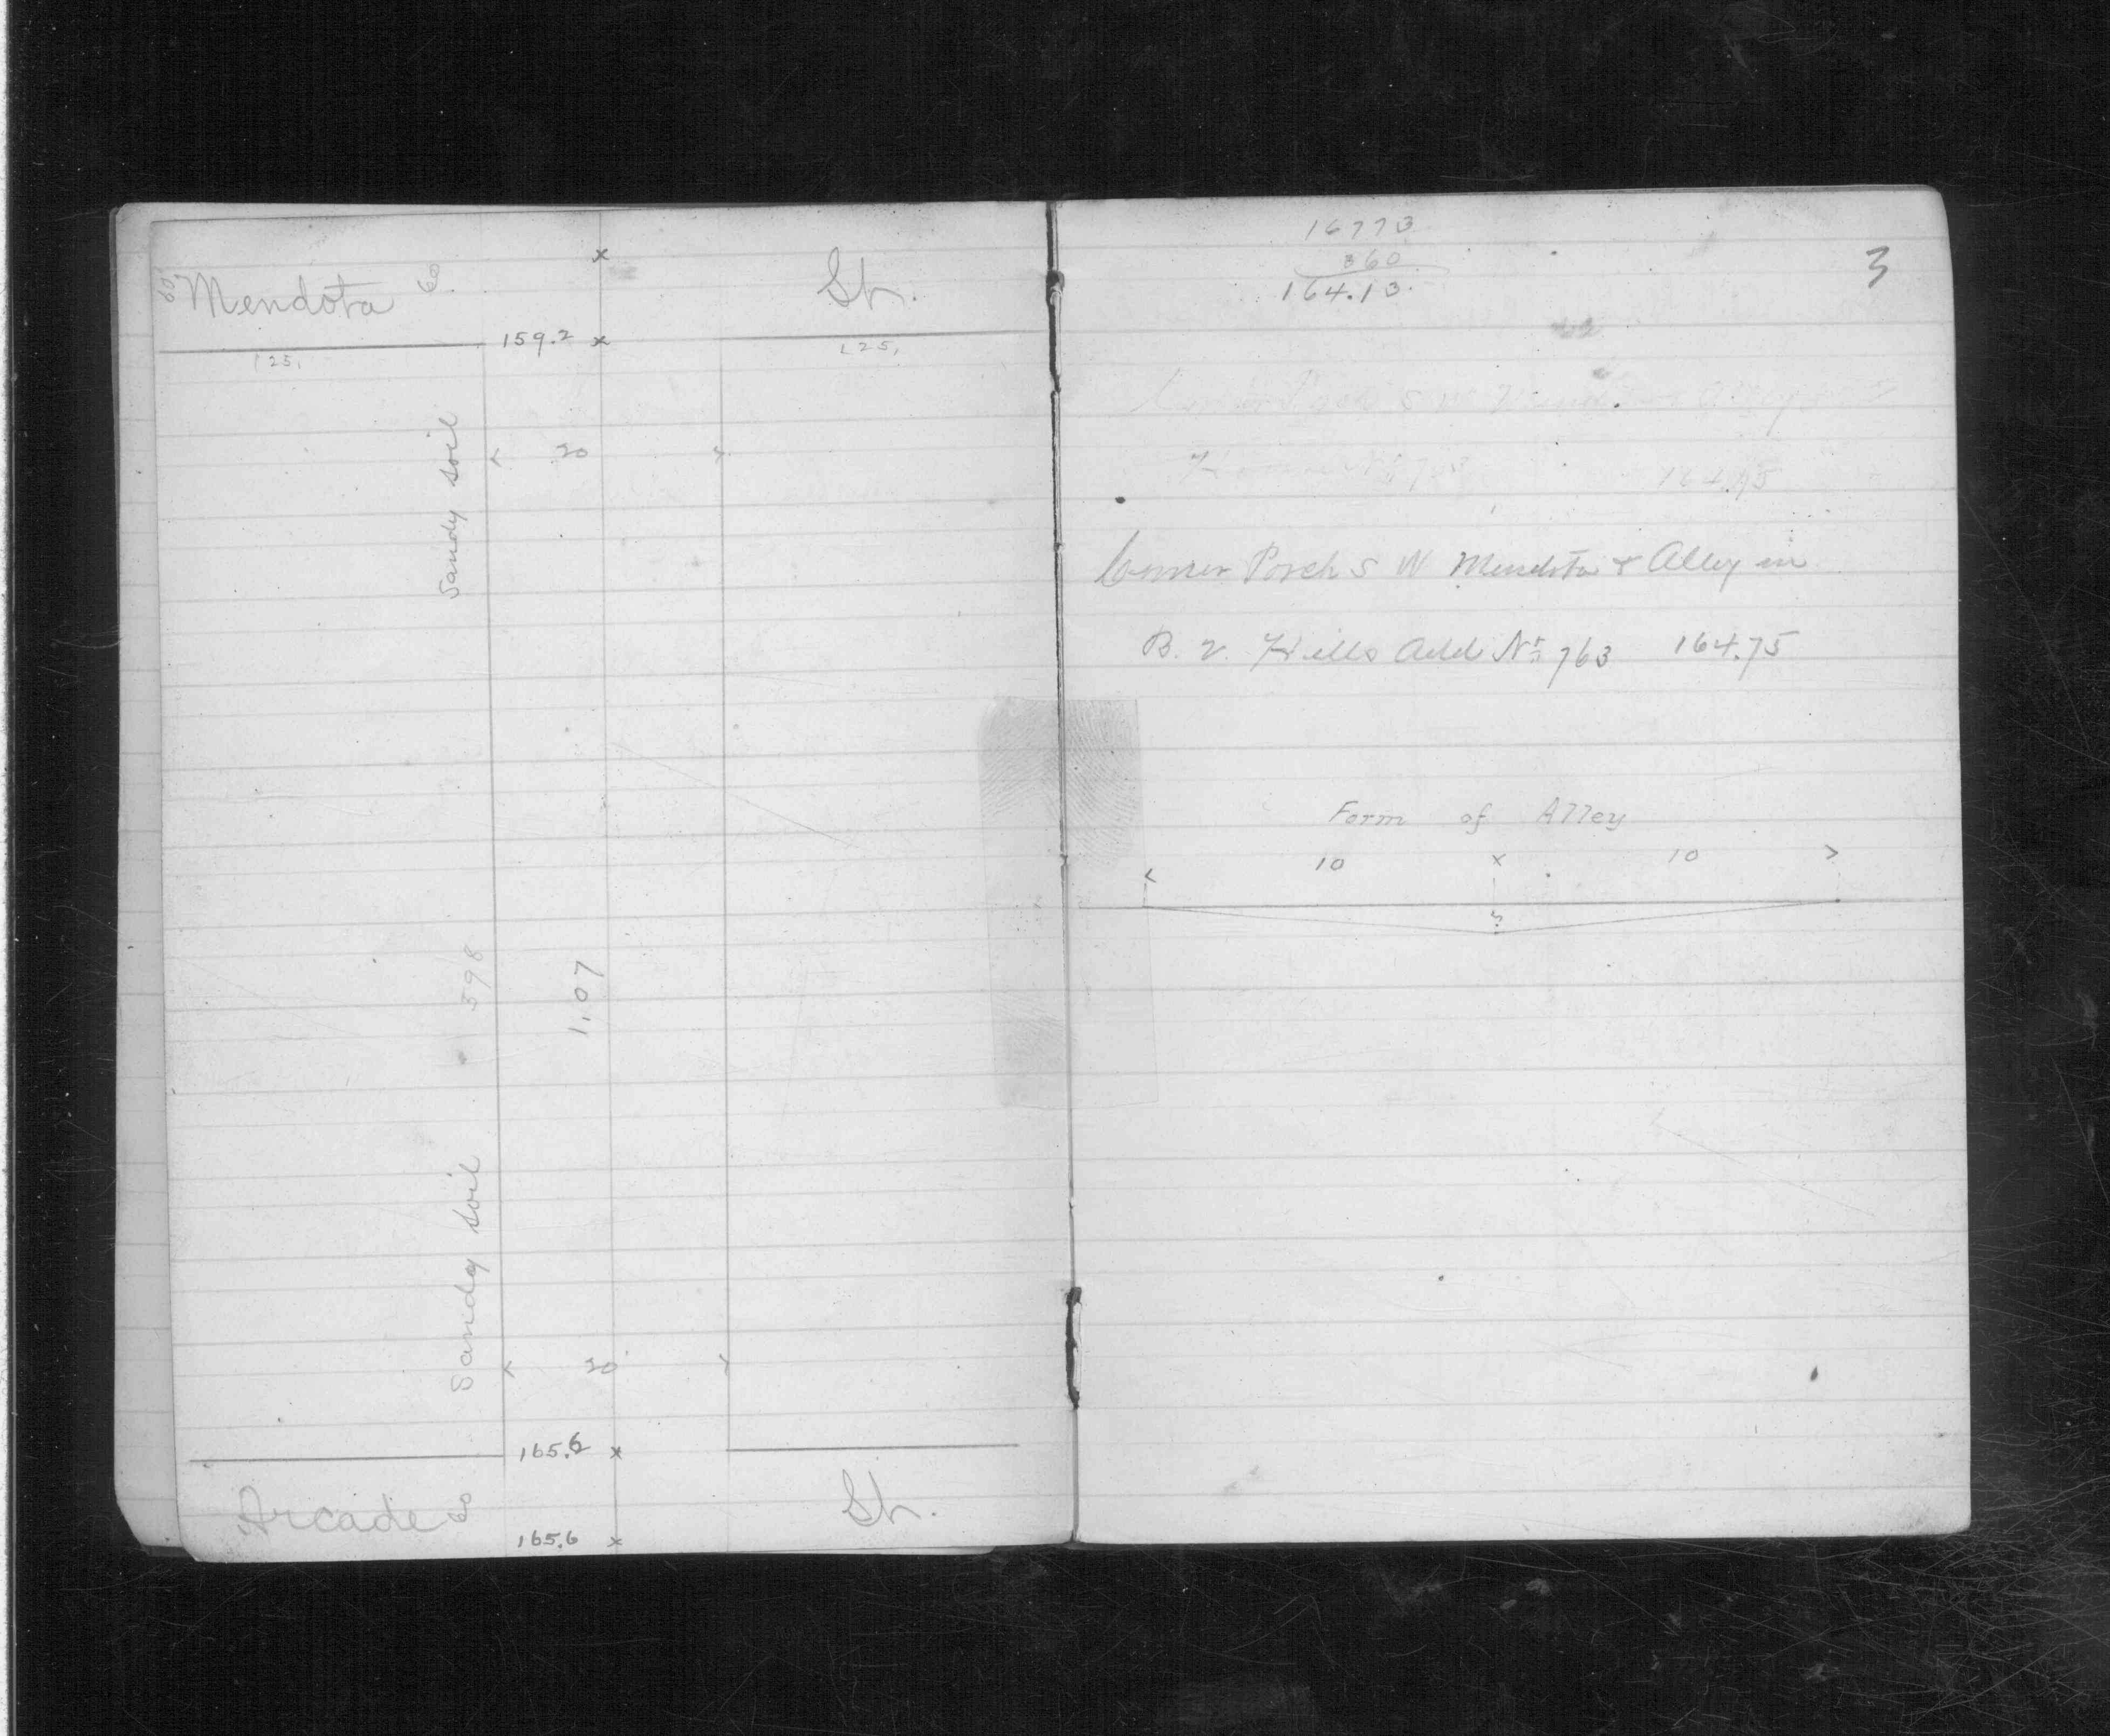 60,
Mendota 60. St.
159.2 x
125, 125,
Sandy soil
20
598
1.07
Sandy soil
20
165.6 x
Arcade 60 St.
165.6 x
3
16773
360
164.13
164.75
Corner Porch S W Mendota & Alley in
B. V. Hills Add No 763 164.75
Form of Alley
< 10 x 10 >